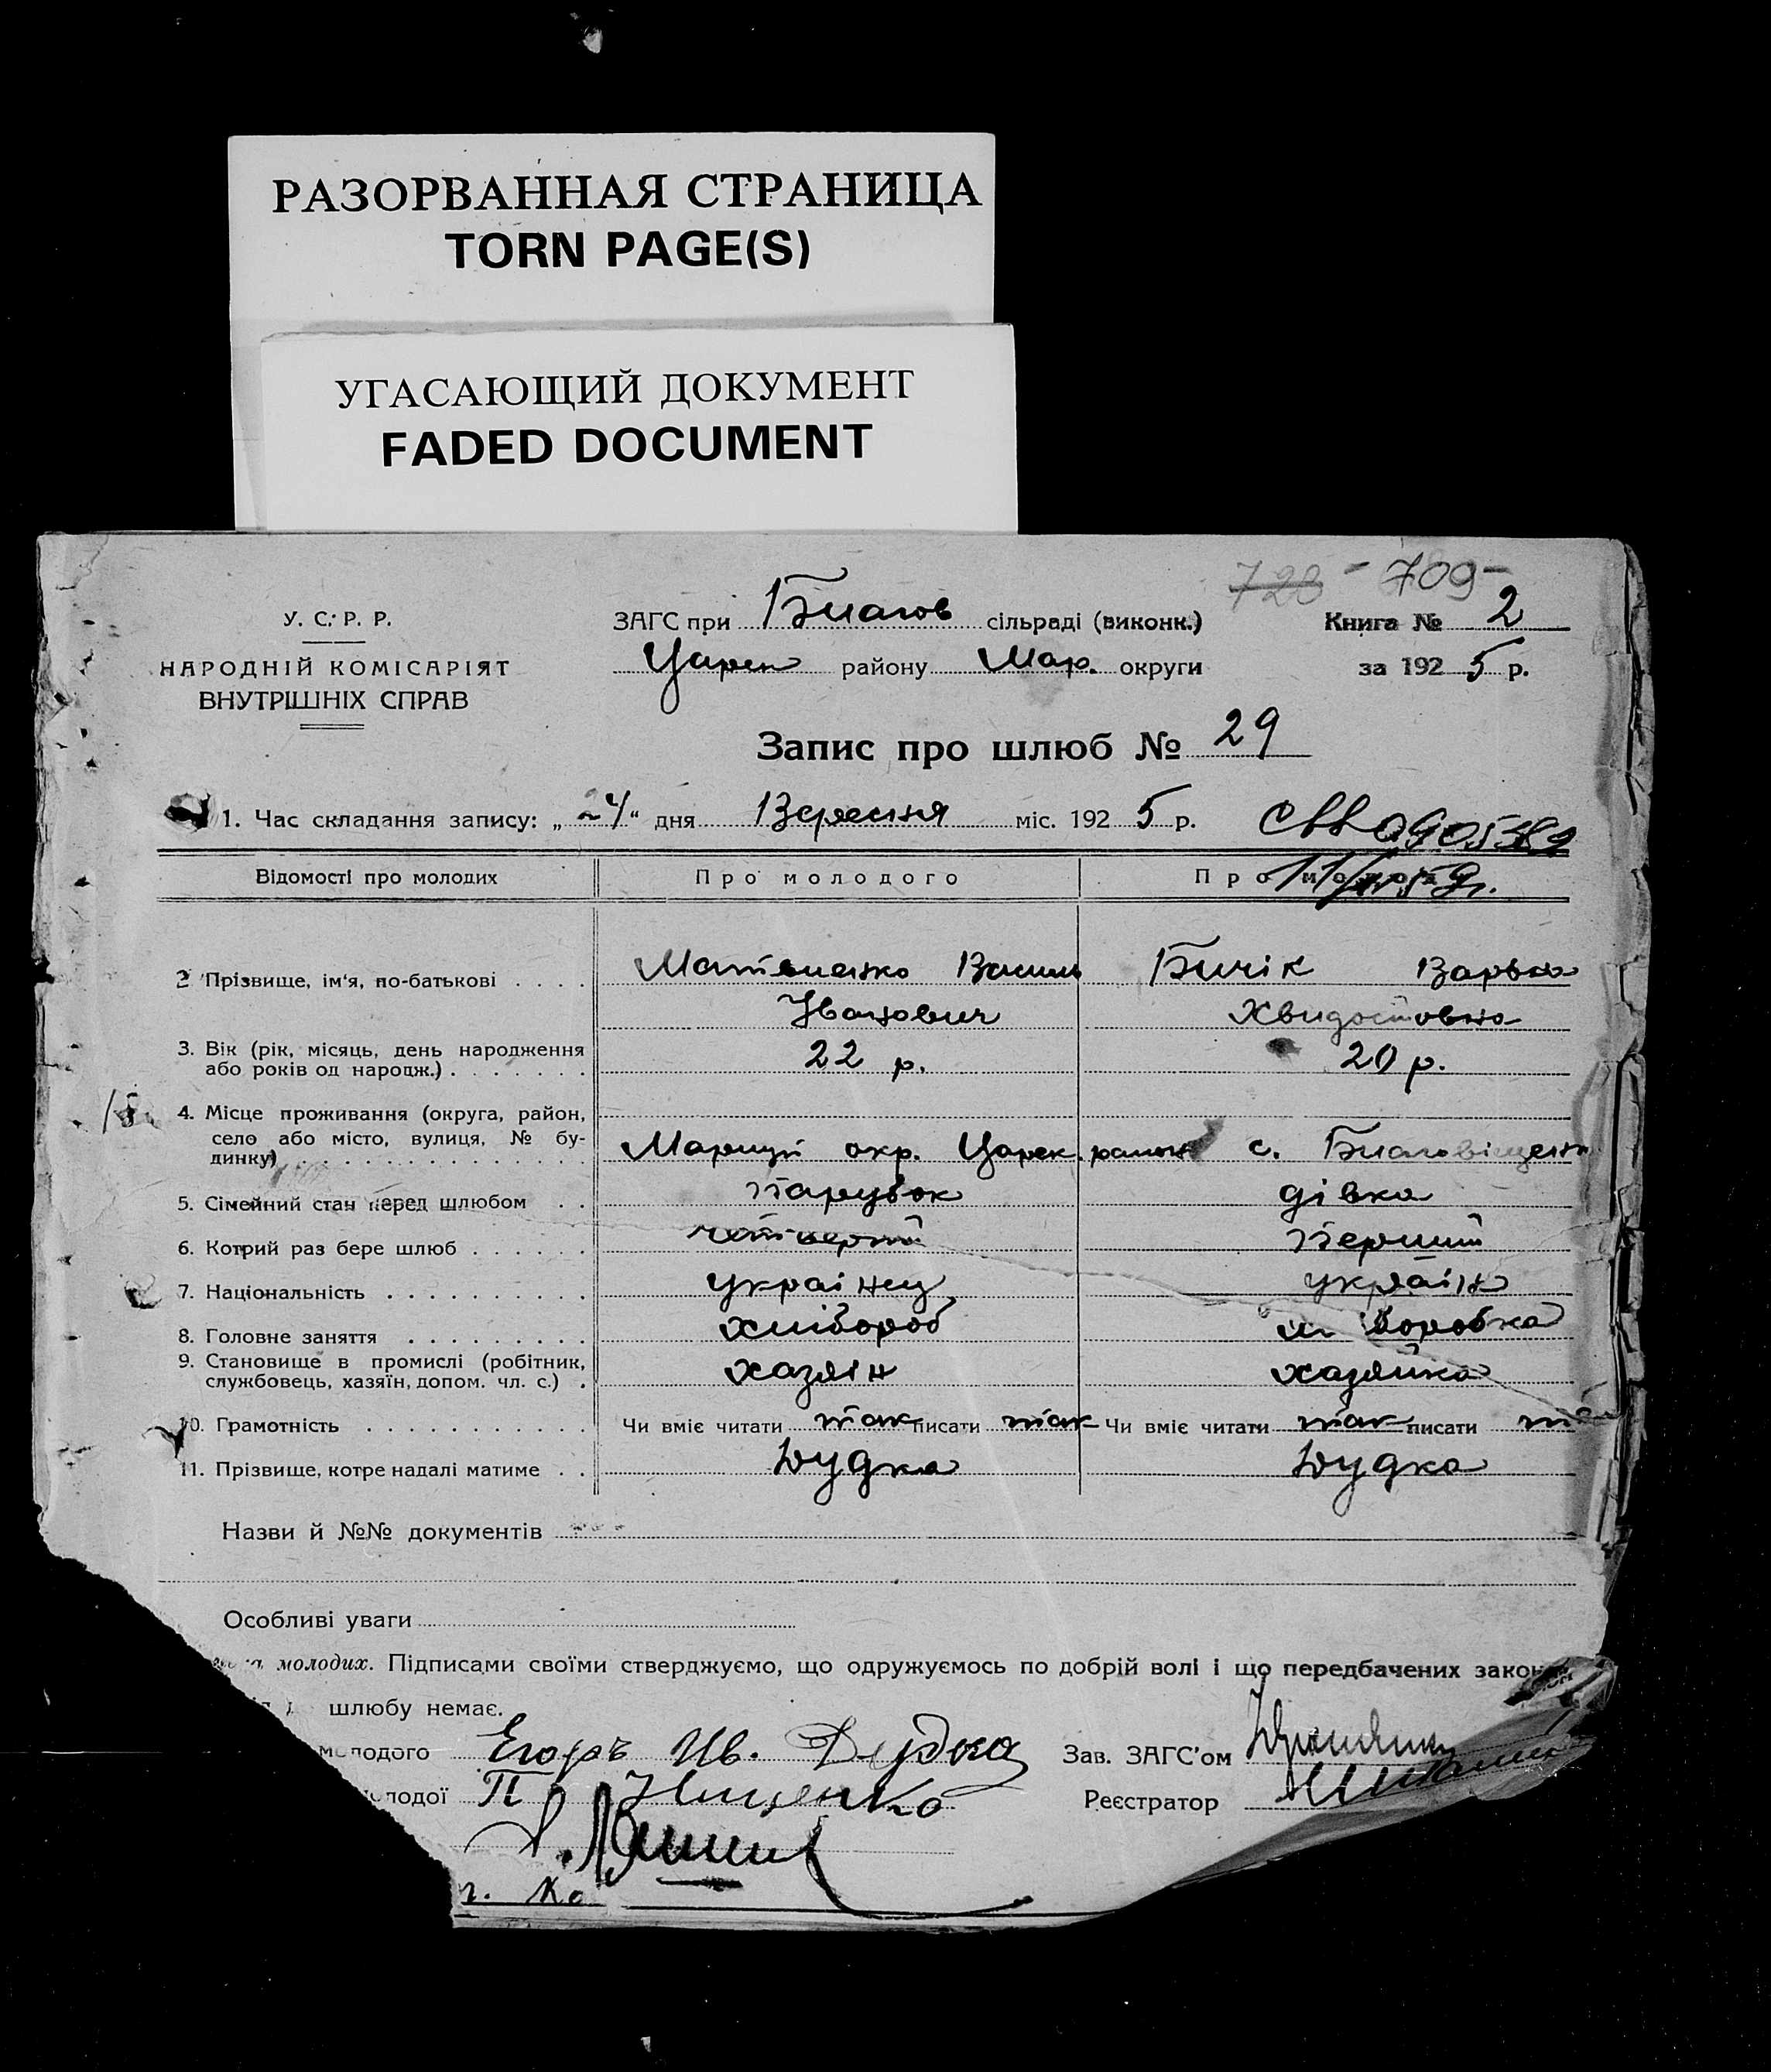 РАЗОРВАННАЯ СТРАНИЦА
TORN PAGE(S)
УГАСАЮЩИЙ ДОКУМЕНТ
FADED DOCUMENT
720 - 709 -
У. С. Р. Р.
НАРОДНІЙ КОМІСАРІЯТ
ВНУТРІШНІХ СПРАВ
ЗАГС при Благов сільраді (виконк.)
Царек району Мар. округи
Книга № 2
за 1925 р.
Запис про шлюб № 29
1. Час складання запису: „24“ дня Вересня міс. 1925 р.
Відомості про молодих Про молодого Про молоду
2 Прізвище, ім'я, по-батькові . . . . Матвиенко Василь Бичік Варька
Иванович Хвидостовна
3. Вік (рік, місяць, день народження
або років од народж.) . . . . . . . 22 р. 20 р.
4. Місце проживання (округа, район,
село або місто, вулиця, № бу-
динку) . . . . . . . . . . . . . . Мариуп окр. Царек. района с. Благовіщенка
5. Сімейний стан перед шлюбом . . парубок дівка
6. Котрий раз бере шлюб . . . . . . перший
7. Національність . . . . . . . . . . українец україн
8. Головне заняття . . . . . . . . . хлібороб боробка
9. Становище в промислі (робітник,
службовець, хазяїн, допом. чл. с.) . хазяін хазяйка
10. Грамотність . . . . . . . . . . . Чи вміє читати так писати так Чи вміє читати так писати
11. Прізвище, котре надалі матиме . . Дудка Дудка
Назви й №№ документів
Особливі уваги
молодих. Підписами своїми стверджуємо, що одружуємось по добрій волі і що передбачених закон
шлюбу немає.
молодого Егоръ Ив. Дудка Зав. ЗАГС'ом
лодої П Нищенко Реєстратор